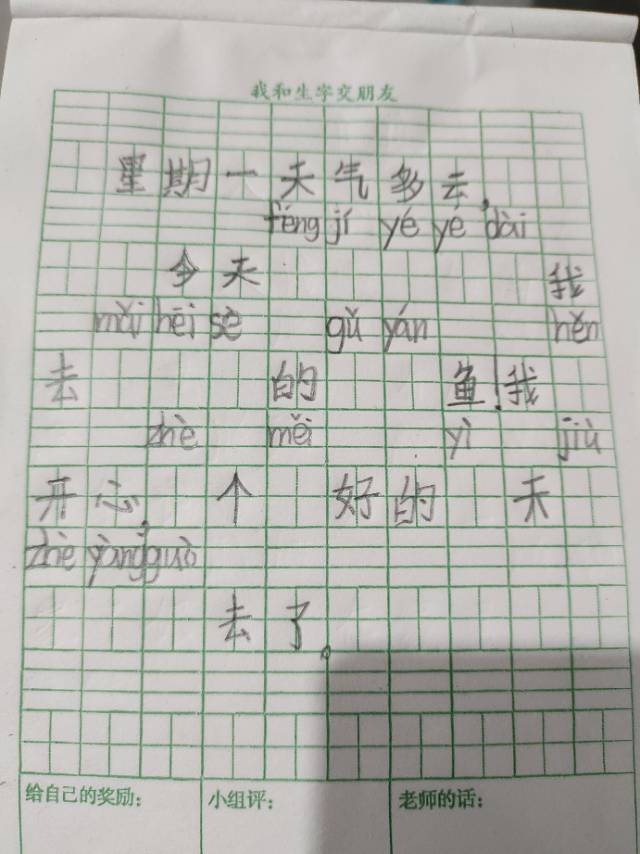 我和生字交朋友
星期一天气多云,
fèng jí yé yé dài
今天 我
mǎi hēi sè gǔ yán hěn
去 的 鱼!我
zhè měi yì jiù
开心, 个 好的 天
zhè yàng guò
去了。
给自己的奖励: 小组评: 老师的话: